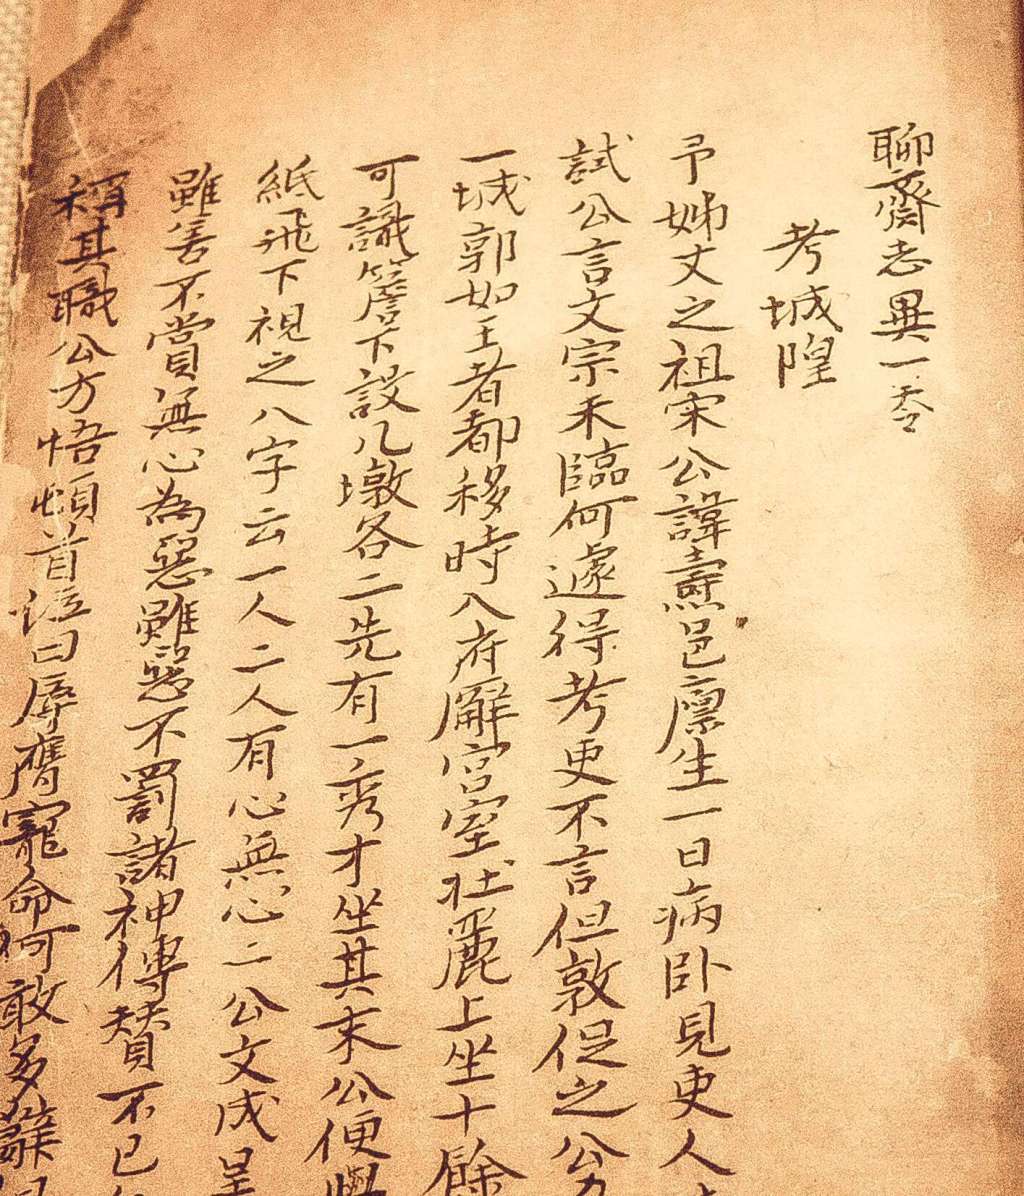 聊齋志異一卷
考城隍
予姊丈之祖宋公諱燾邑廪生一日病卧見吏人
試公言文宗未臨何遽得考吏不言但敦促之公
一城郭如王者都移時入府廨宮室壯麗上坐十餘
可識簷下設几墩各二先有一秀才坐其末公便與
紙飛下視之八字云一人二人有心無心二公文成呈
雖善不賞無心為惡雖惡不罰諸神傳贊不已
稱其職公方悟頓首泣曰辱膺寵命何敢多辭